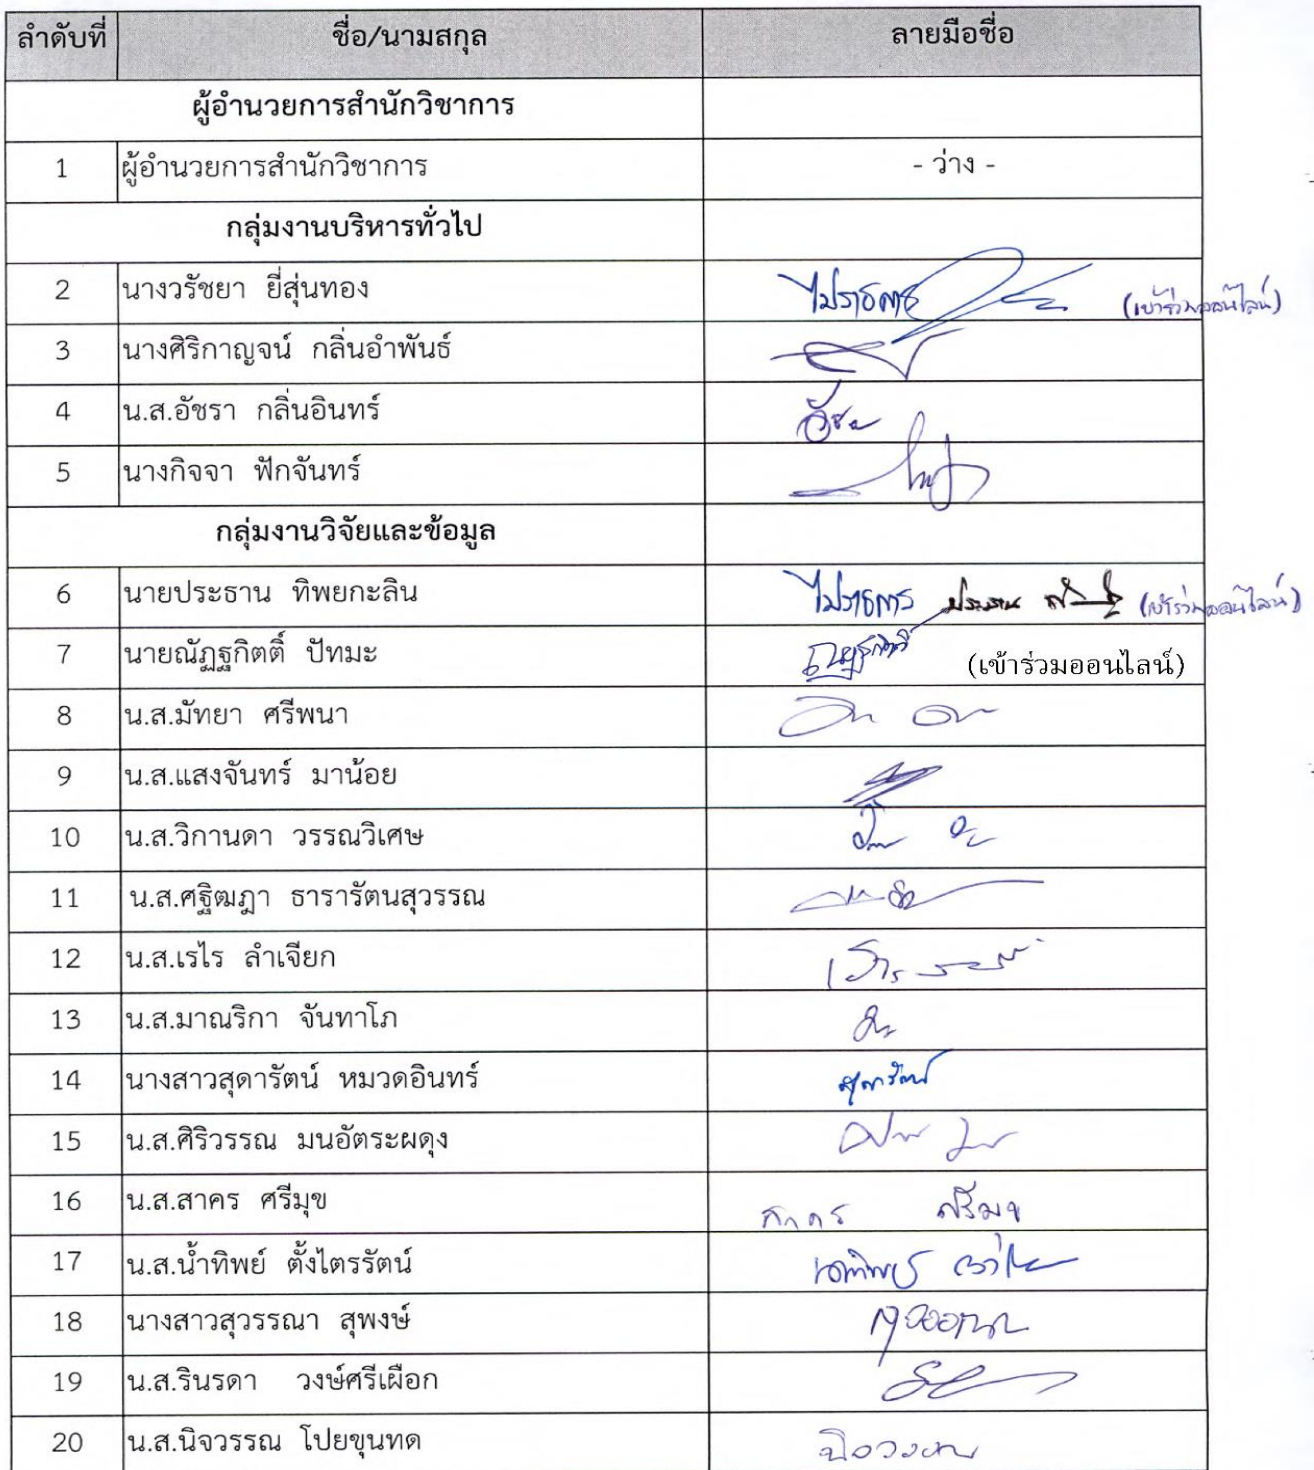 ลำดับที่ ชื่อ/นามสกุล ลายมือชื่อ
ผู้อำนวยการสำนักวิชาการ
1 ผู้อำนวยการสำนักวิชาการ - ว่าง -
กลุ่มงานบริหารทั่วไป
2 นางวรัชยา ยี่สุ่นทอง ไปราชการ (เข้าร่วมออนไลน์)
3 นางศิริกาญจน์ กลิ่นอำพันธ์
4 น.ส.อัชรา กลิ่นอินทร์
5 นางกิจจา ฟักจันทร์
กลุ่มงานวิจัยและข้อมูล
6 นายประธาน ทิพยกะลิน ไปราชการ ประธาน (เข้าร่วมออนไลน์)
7 นายณัฏฐกิตติ์ ปัทมะ ณัฏฐกิตติ์ (เข้าร่วมออนไลน์)
8 น.ส.มัทยา ศรีพนา
9 น.ส.แสงจันทร์ มาน้อย
10 น.ส.วิกานดา วรรณวิเศษ
11 น.ส.ศฐิฒฎา ธารารัตนสุวรรณ
12 น.ส.เรไร ลำเจียก
13 น.ส.มาณริกา จันทาโภ
14 นางสาวสุดารัตน์ หมวดอินทร์ สุดารัตน์
15 น.ส.ศิริวรรณ มนอัตระผดุง
16 น.ส.สาคร ศรีมุข สาคร ศรีมุข
17 น.ส.น้ำทิพย์ ตั้งไตรรัตน์
18 นางสาวสุวรรณา สุพงษ์
19 น.ส.รินรดา วงษ์ศรีเผือก
20 น.ส.นิจวรรณ โปยขุนทด นิจวรรณ